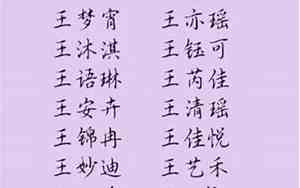 王梦宵 王亦瑶
王沐淇 王钰可
王语琳 王芮佳
王安卉 王清瑶
王锦冉 王佳悦
王妙迪 王艺禾